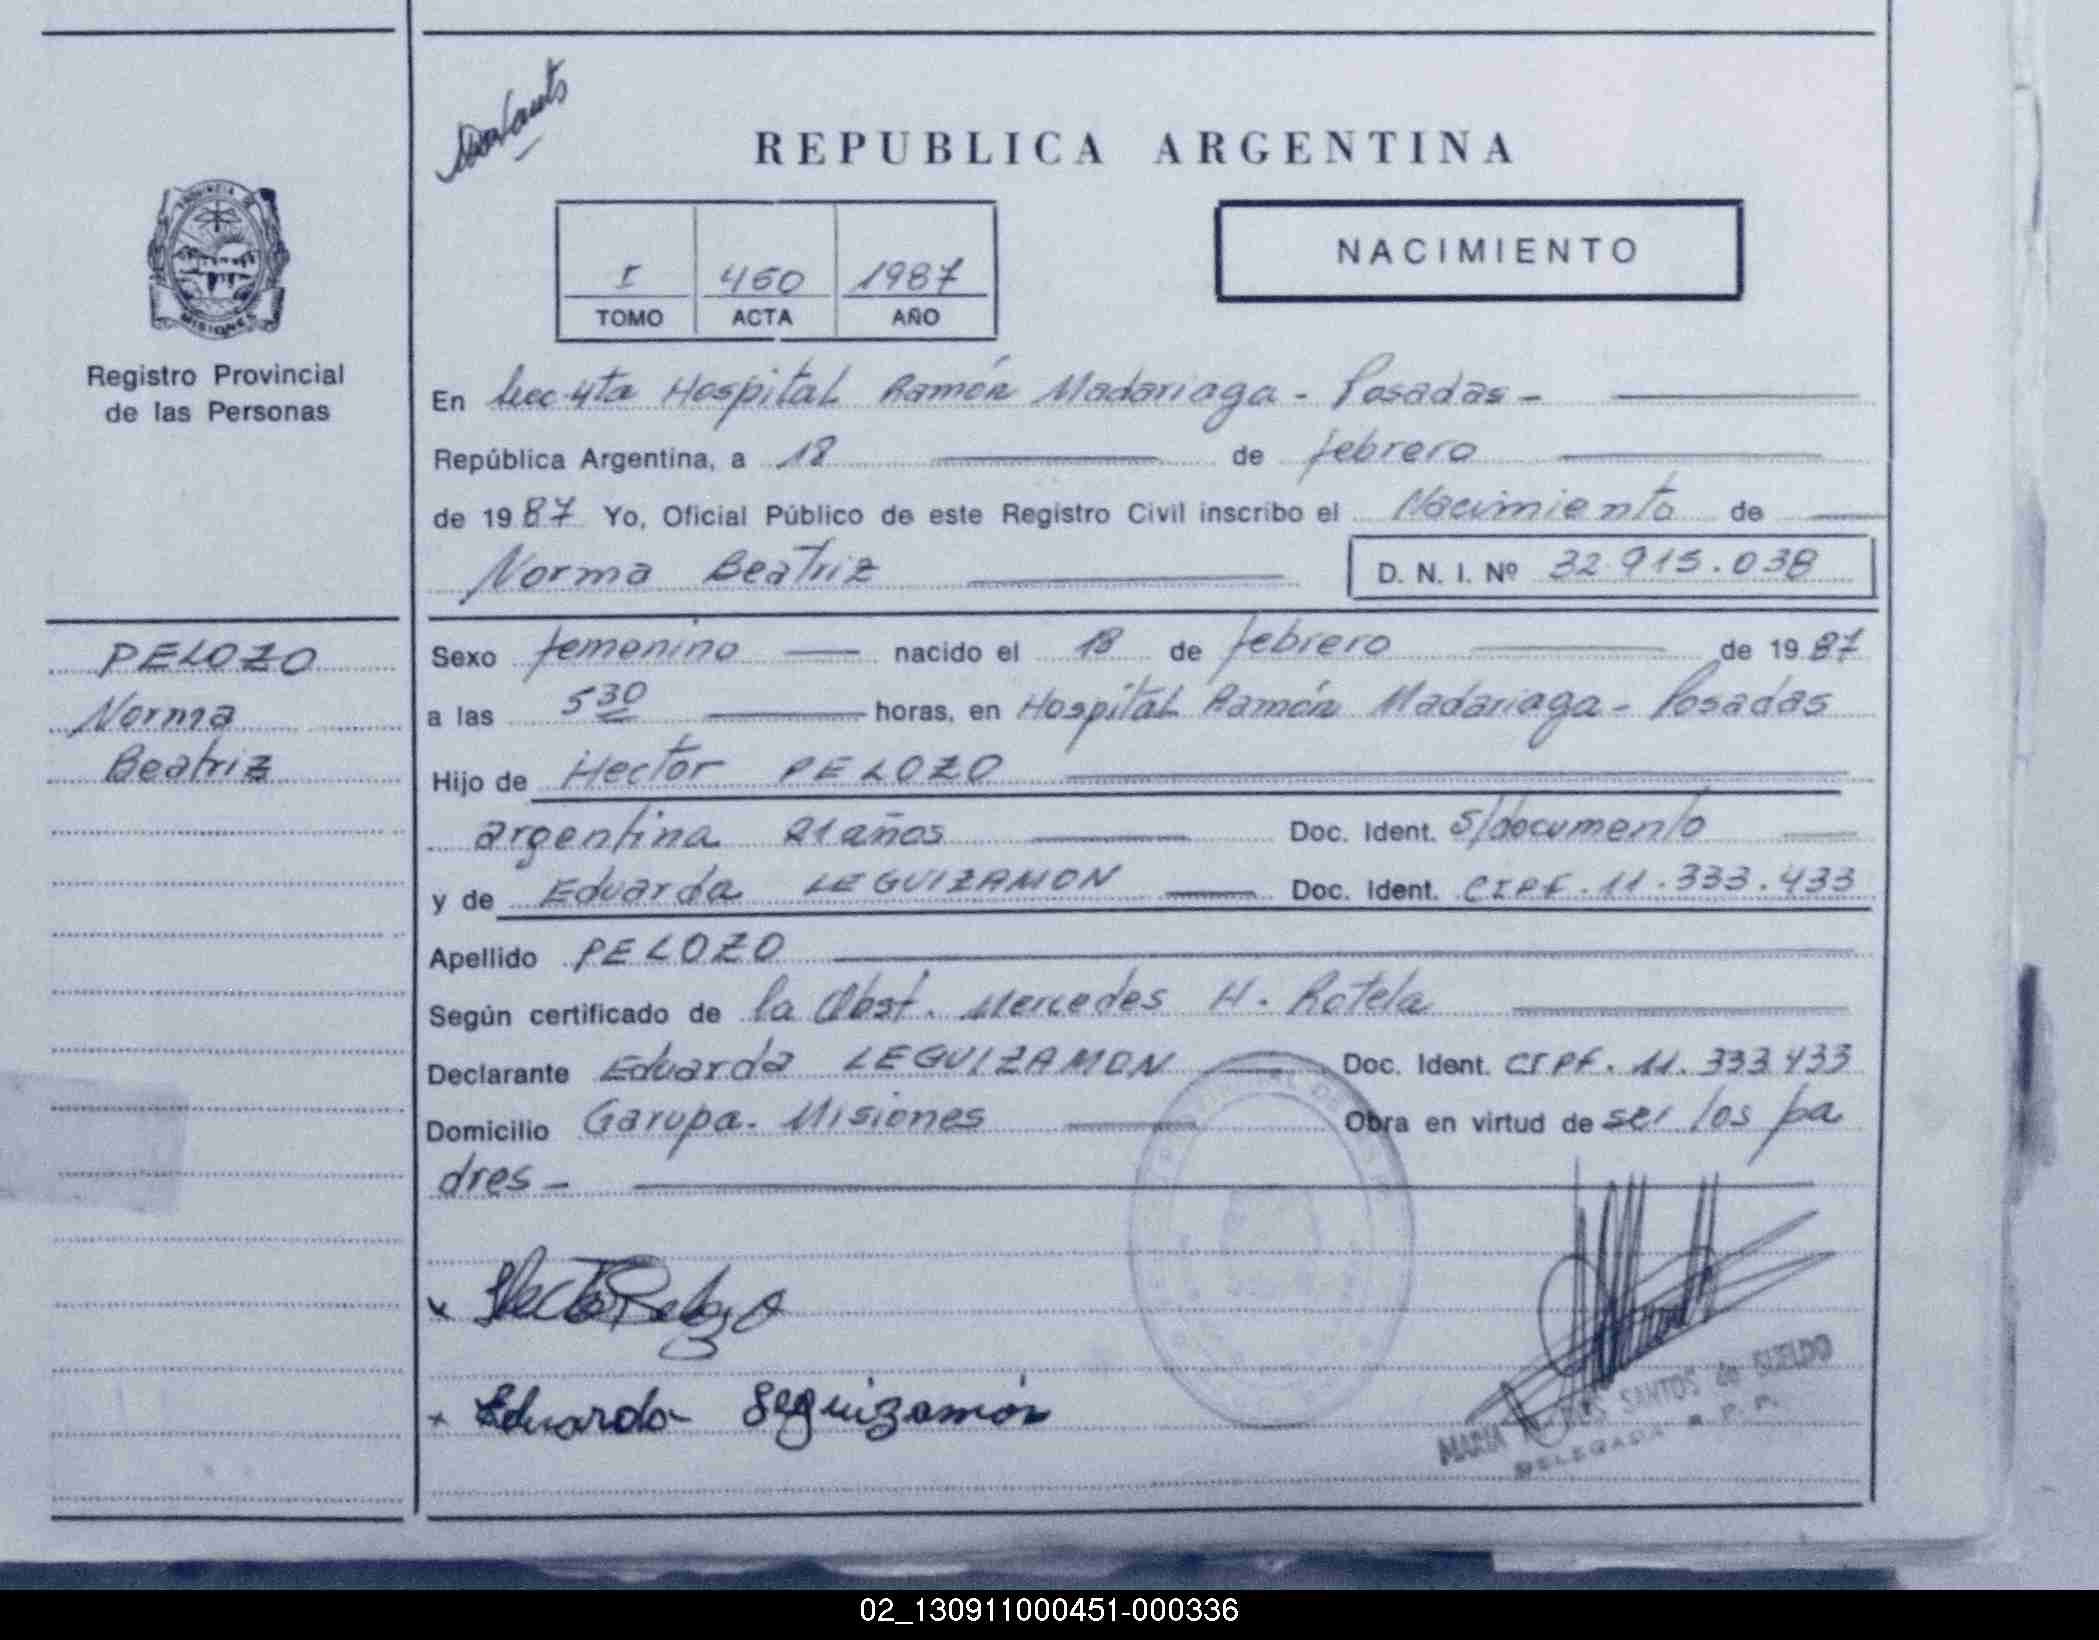 REPUBLICA ARGENTINA
PROVINCIA DE
MISIONES
Registro Provincial
de las Personas
I 460 1987
TOMO ACTA AÑO
NACIMIENTO
En Secc 4ta Hospital Ramón Madariaga - Posadas -
República Argentina, a 18 de febrero
de 1987 Yo, Oficial Público de este Registro Civil inscribo el Nacimiento de
Norma Beatriz D. N. I. Nº 32.915.038
PELOZO
Norma
Beatriz
Sexo femenino nacido el 18 de febrero de 1987
a las 5 30 horas, en Hospital Ramón Madariaga - Posadas
Hijo de Hector PELOZO
argentina 21 años Doc. Ident. s/documento
y de Eduarda LEGUIZAMON Doc. Ident. CIPF. 11.333.433
Apellido PELOZO
Según certificado de la Obst. Mercedes H. Rotela
Declarante Eduarda LEGUIZAMON Doc. Ident. CIPF. 11.333.433
Domicilio Garupa. Misiones Obra en virtud de ser los pa
dres -
x Hector Pelozo
x Eduarda Leguizamón
MARIA SANTOS de GUELDO
DELEGADA R. P. P.
02_130911000451-000336